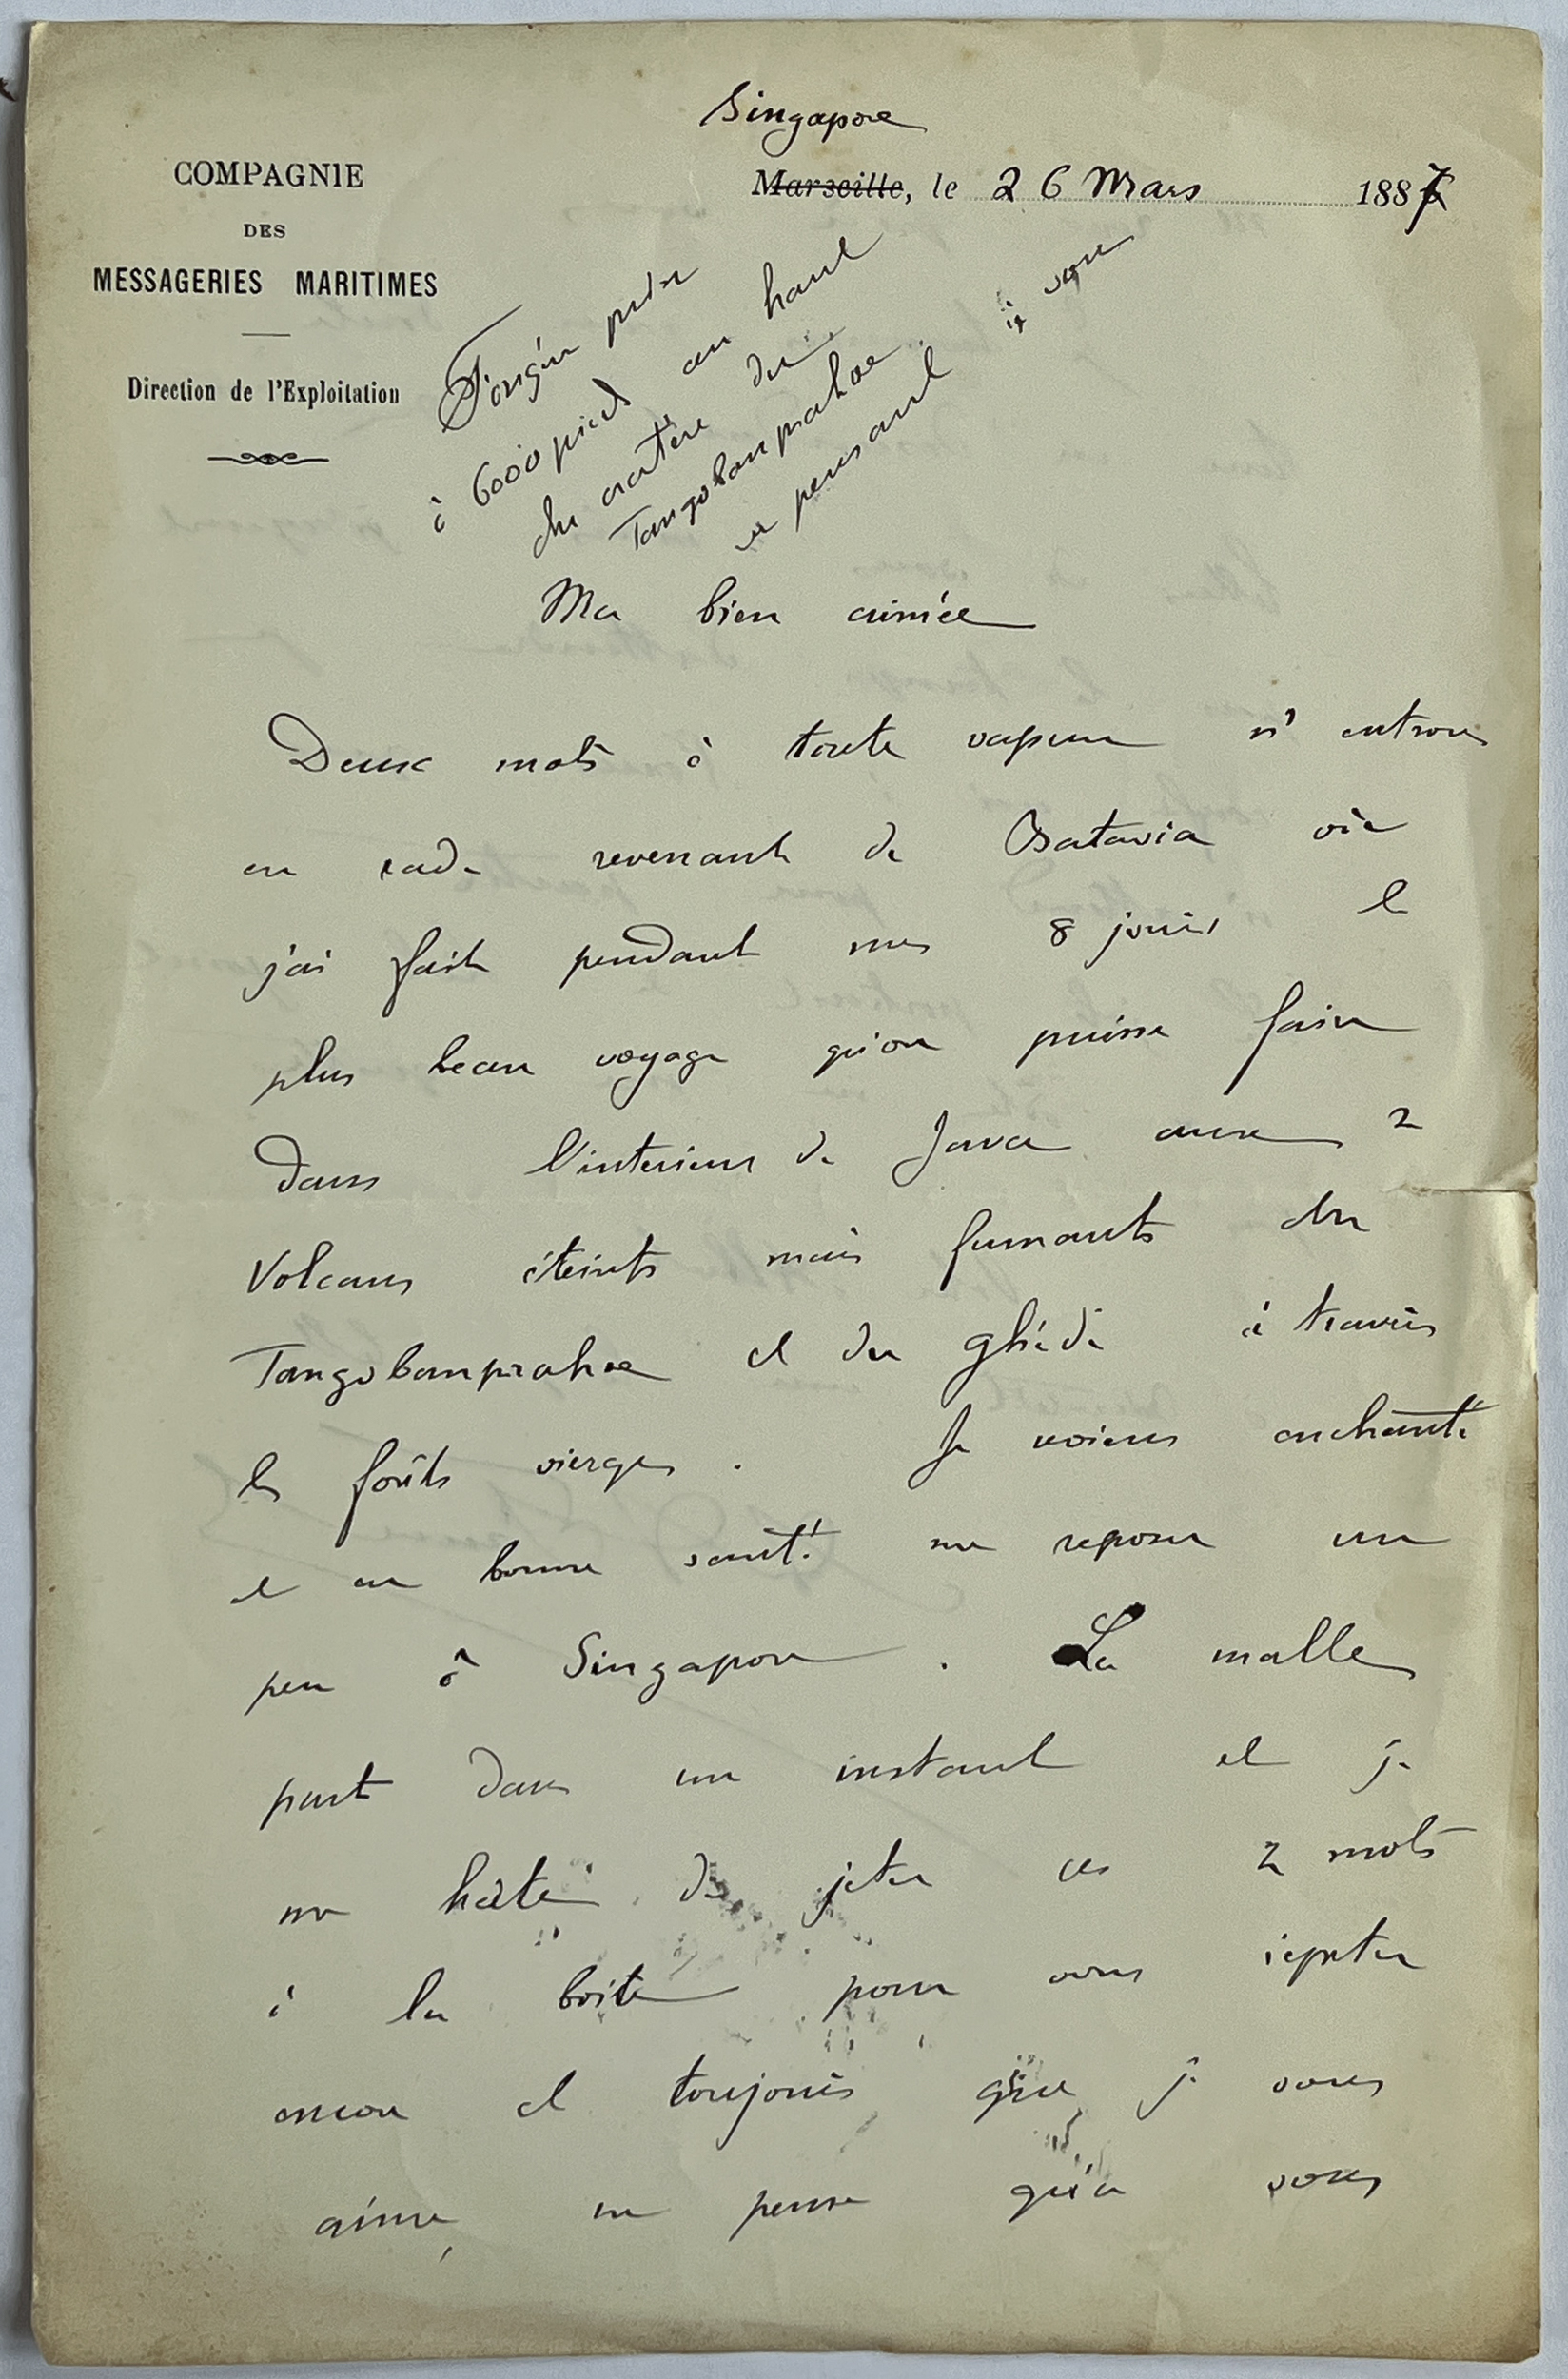 Singapore
COMPAGNIE
DES
MESSAGERIES MARITIMES
Direction de l'Exploitation
Marseille, le 26 Mars 1887
Fougère prise
à 6000 pieds au haut
du cratère du
Tangobanprahoe
en pensant à vous
Ma bien aimée
Deux mots à toute vapeur n/ entrons
en rade revenant de Batavia où
j'ai fait pendant mes 8 jours le
plus beau voyage qu'on puisse faire
dans l'interieur de Java aux 2
Volcans éteints mais fumants du
Tangobanprahoe et du ghédé à travers
les forêts vierges. Je reviens enchanté
et en bonne santé me reposer un
peu à Singapore. La malle
part dans un instant et je
me hâte de jeter ces 2 mots
à la boite pour vous répéter
encore et toujours que je vous
aime, ne pense qu'à vous